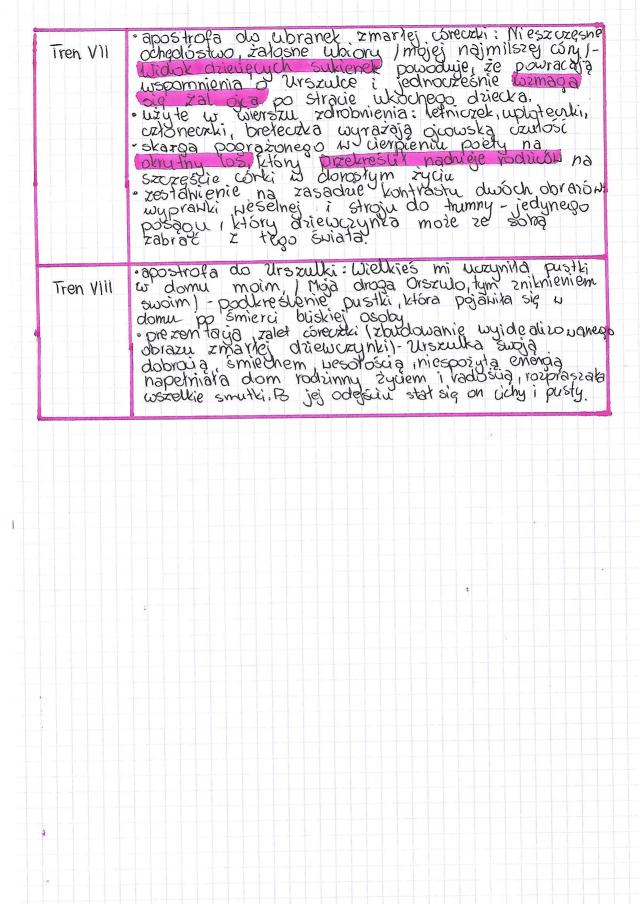 Tren VII
• apostrofa do ubranek zmarłej córeczki: Nieszczęsne
ochędóstwo, żałosne ubiory /mojej najmilszej córy/-
Widok dziecięcych sukienek powoduje, że powracają
wspomnienia o Urszulce i jednocześnie wzmaga
się żal ojca po stracie ukochanego dziecka.
• użyte w wierszu zdrobnienia: letniczek, uploteczki,
członeczki, brełeczka wyrażają ojcowską czułość
- skarga pogrążonego w cierpieniu poety na
okrutny los, który przekreślił nadzieje rodziców na
szczęście córki w dorosłym życiu
• zestawienie na zasadzie kontrastu dwóch obrazów:
wyprawki weselnej i stroju do trumny - jedynego
posagu, który dziewczynka może ze sobą
zabrać z tego świata.
Tren VIII
• apostrofa do Urszulki: Wielkieś mi uczyniła pustki
w domu moim, / Moja droga Orszulo, tym zniknieniem
swoim) - podkreślenie pustki, która pojawiła się w
domu po śmierci bliskiej osoby
• prezentacja zalet córeczki (zbudowanie wyidealizowanego
obrazu zmarłej dziewczynki)- Urszulka swoją
dobrocią, śmiechem, wesołością, niespożytą energią
napełniała dom rodzinny życiem i radością, rozpraszała
wszelkie smutki. Po jej odejściu stał się on cichy i pusty.